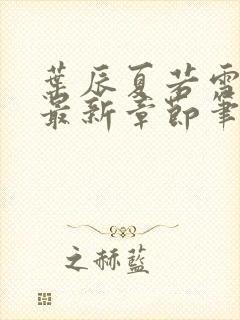 葉辰夏若雪
最新章節筆
之赫藍